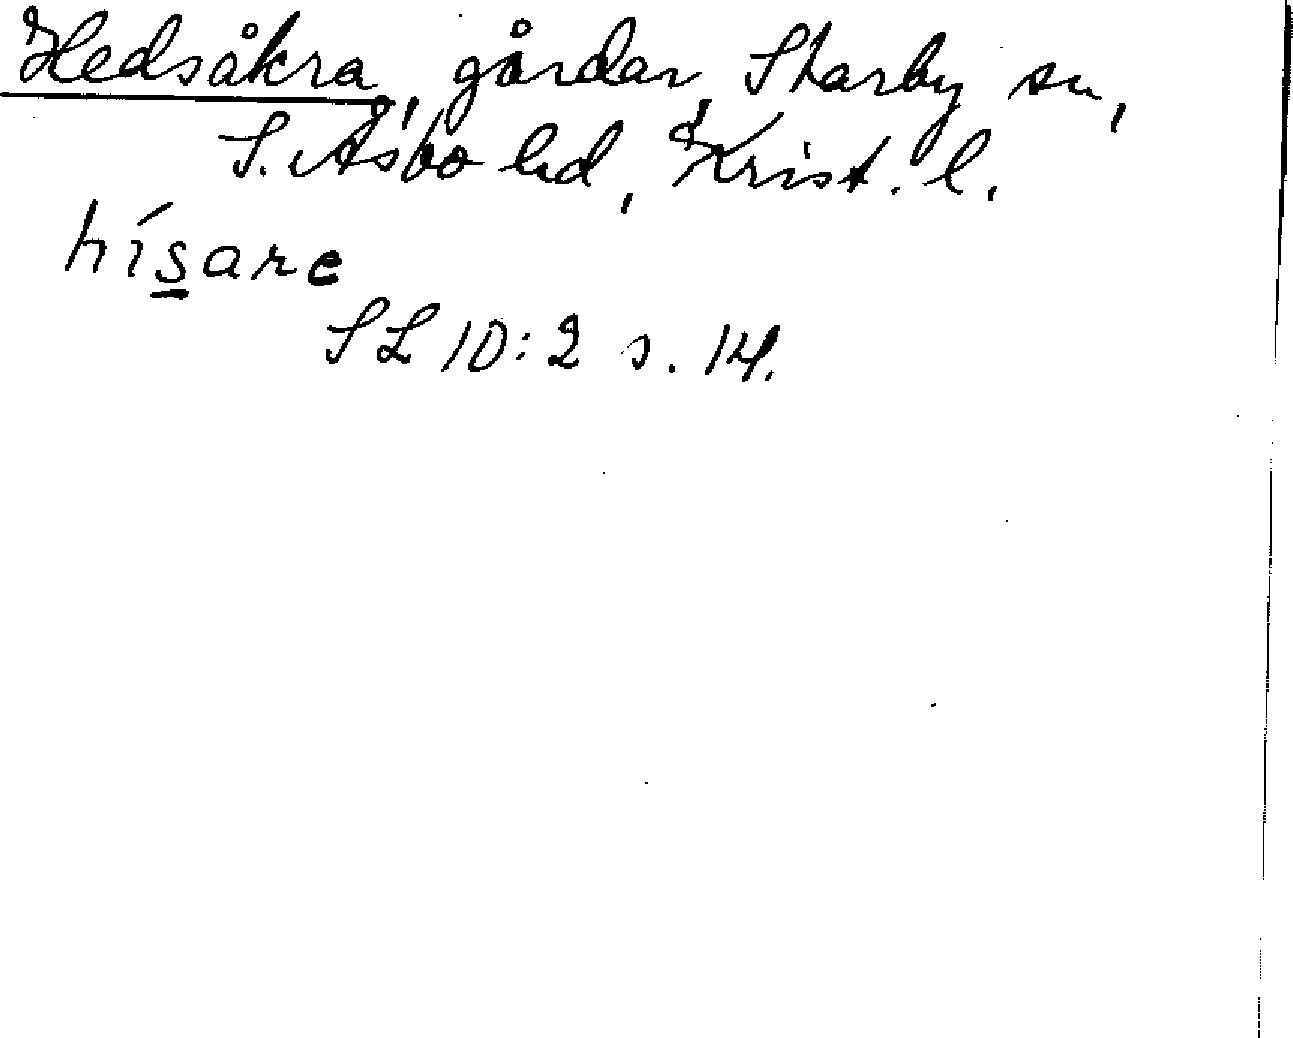 Hedsåkra, gårdar, Starby sn,
S. Åsbo hd, Krist. l.
hísare
SL 10:2 s. 14.